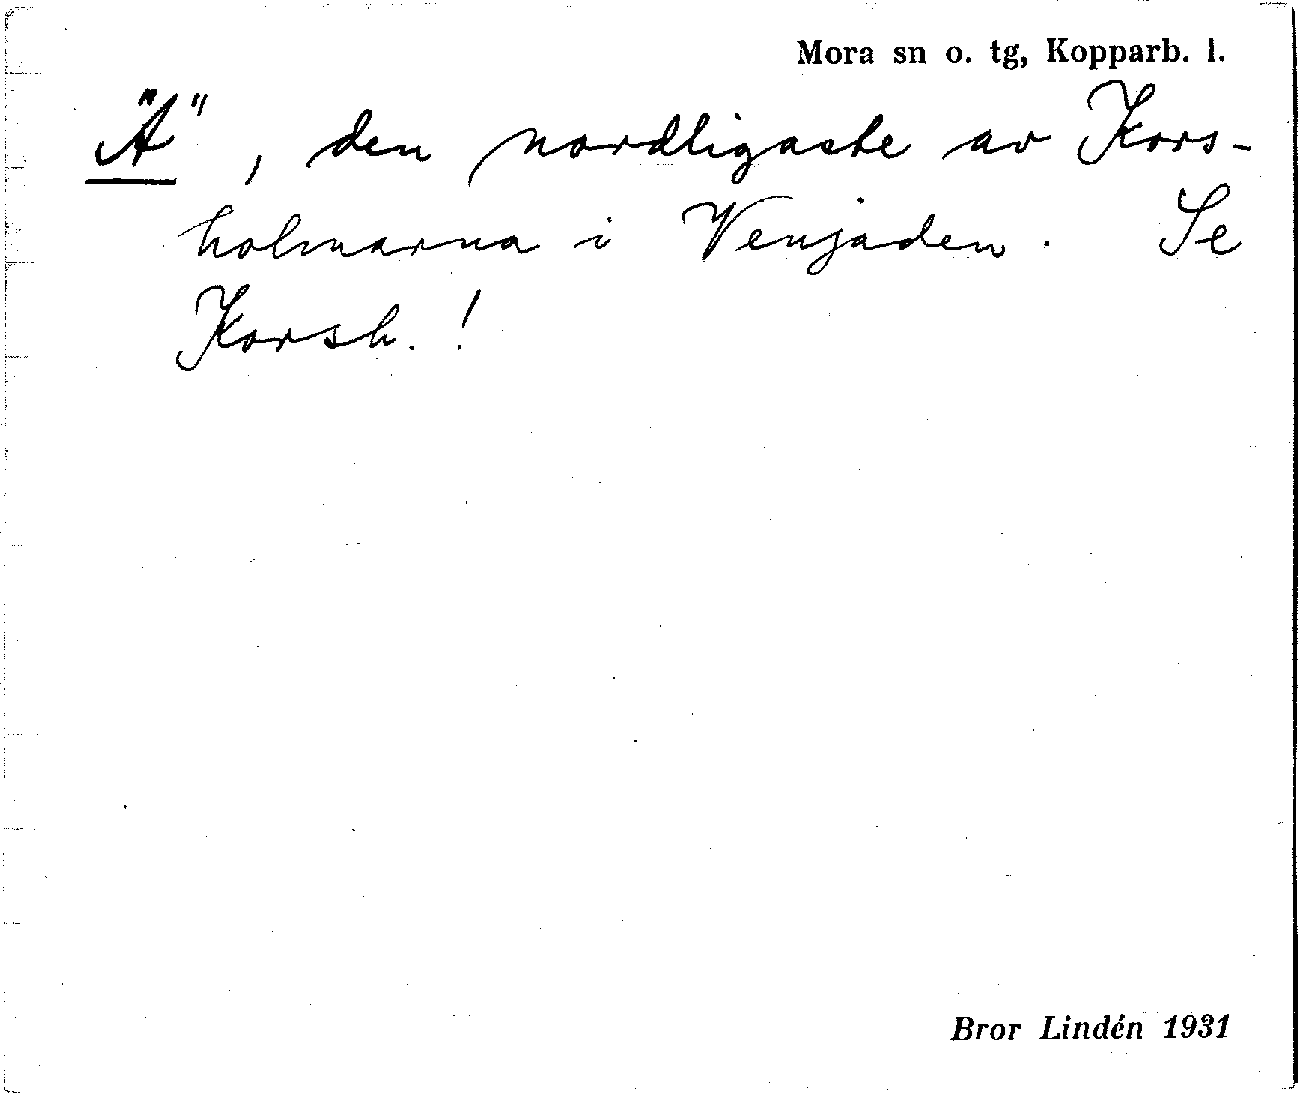 Mora sn o. tg, Kopparb. l.
"A", den nordligaste av Kors-
holmarna i Venjaden. Se
Korsh.!
Bror Lindén 1931